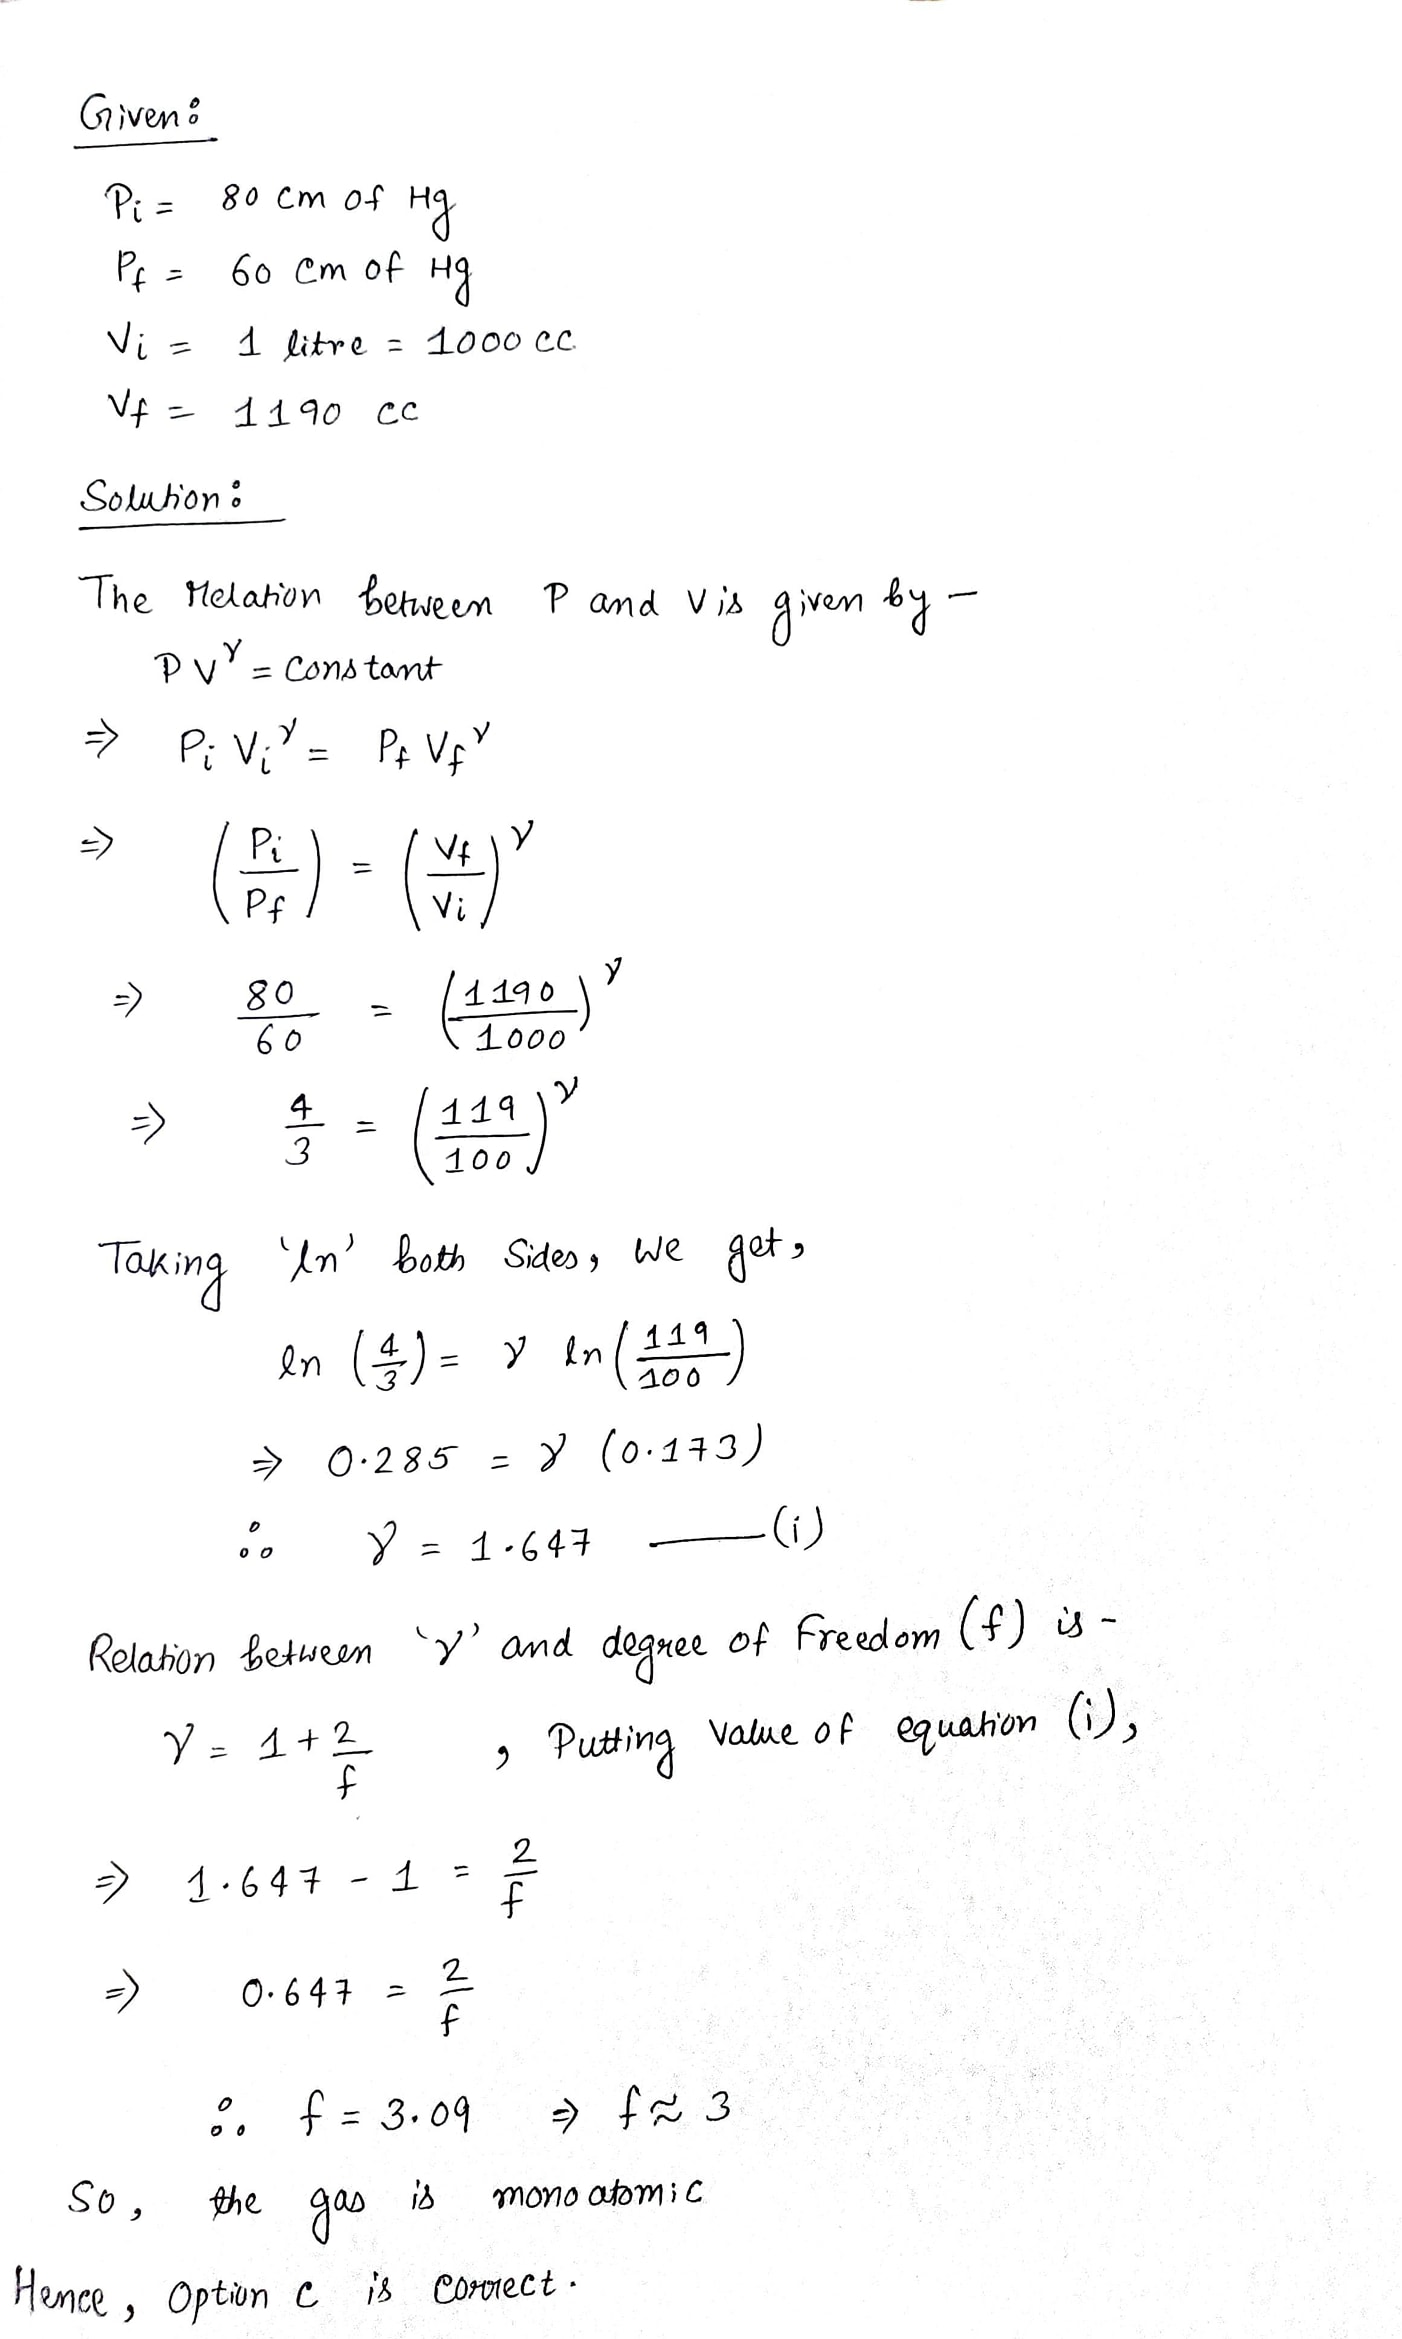 Given:
Pi = 80 cm of Hg
Pf = 60 cm of Hg
Vi = 1 litre = 1000 cc
Vf = 1190 cc
Solution:
The relation between P and V is given by -
PV^γ = Constant
⇒ Pi Vi^γ = Pf Vf^γ
⇒ (Pi/Pf) = (Vf/Vi)^γ
⇒ 80/60 = (1190/1000)^γ
⇒ 4/3 = (119/100)^γ
Taking 'ln' both sides, we get,
ln (4/3) = γ ln(119/100)
⇒ 0.285 = γ (0.173)
∴ γ = 1.647 —(i)
Relation between 'γ' and degree of Freedom (f) is -
γ = 1 + 2/f , Putting value of equation (i),
⇒ 1.647 - 1 = 2/f
⇒ 0.647 = 2/f
∴ f = 3.09 ⇒ f ≈ 3
So, the gas is mono atomic
Hence, Option C is correct.